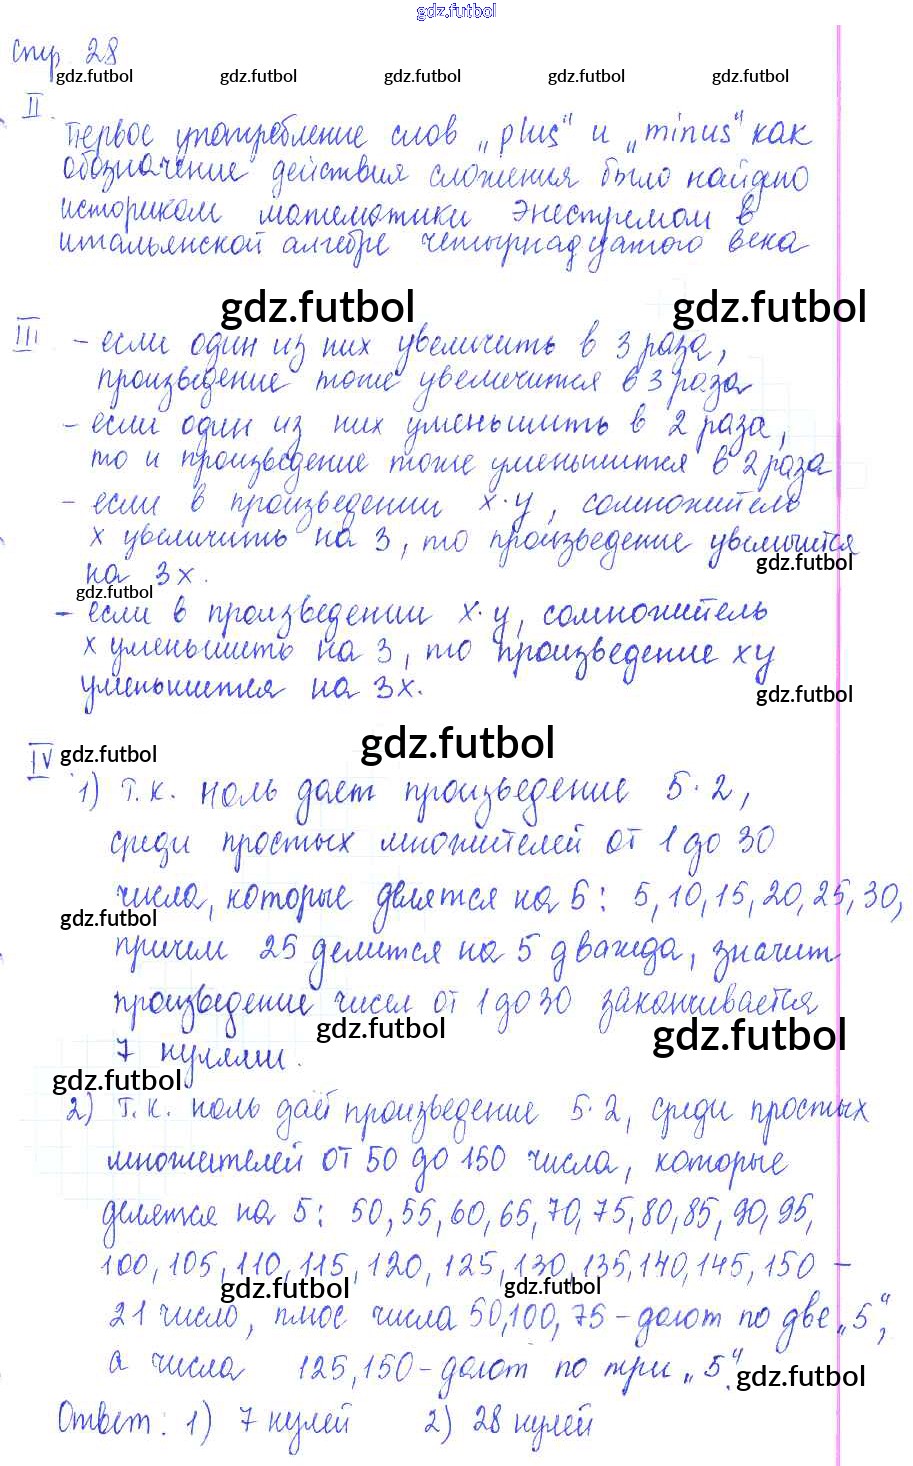 gdz.futbol
стр. 28
gdz.futbol gdz.futbol gdz.futbol gdz.futbol gdz.futbol
II.
Первое употребление слов „plus“ и „minus“ как
обозначение действия сложения было найдено
историком математики Энестремом в
итальянской алгебре четырнадцатого века
gdz.futbol gdz.futbol
III - если один из них увеличить в 3 раза,
произведение тоже увеличится в 3 раза
- если один из них уменьшить в 2 раза,
то и произведение тоже уменьшится в 2 раза
- если в произведении x·y, сомножитель
x увеличить на 3, то произведение увеличится
gdz.futbol
на 3x.
gdz.futbol
- если в произведении x·y, сомножитель
x уменьшить на 3, то произведение xy
уменьшится на 3x.
gdz.futbol
gdz.futbol
IV gdz.futbol
1) Т.к. ноль дает произведение 5·2,
среди простых множителей от 1 до 30
числа, которые делятся на 5: 5, 10, 15, 20, 25, 30,
gdz.futbol
причем 25 делится на 5 дважды, значит
произведение чисел от 1 до 30 заканчивается
gdz.futbol gdz.futbol
7 нулями.
gdz.futbol
2) Т.к. ноль даёт произведение 5·2, среди простых
множителей от 50 до 150 числа, которые
делятся на 5: 50, 55, 60, 65, 70, 75, 80, 85, 90, 95,
100, 105, 110, 115, 120, 125, 130, 135, 140, 145, 150 –
gdz.futbol gdz.futbol
21 число, плюс числа 50, 100, 75 – дают по две „5“,
а числа 125, 150 – дают по три „5“.
gdz.futbol
Ответ: 1) 7 нулей 2) 28 нулей